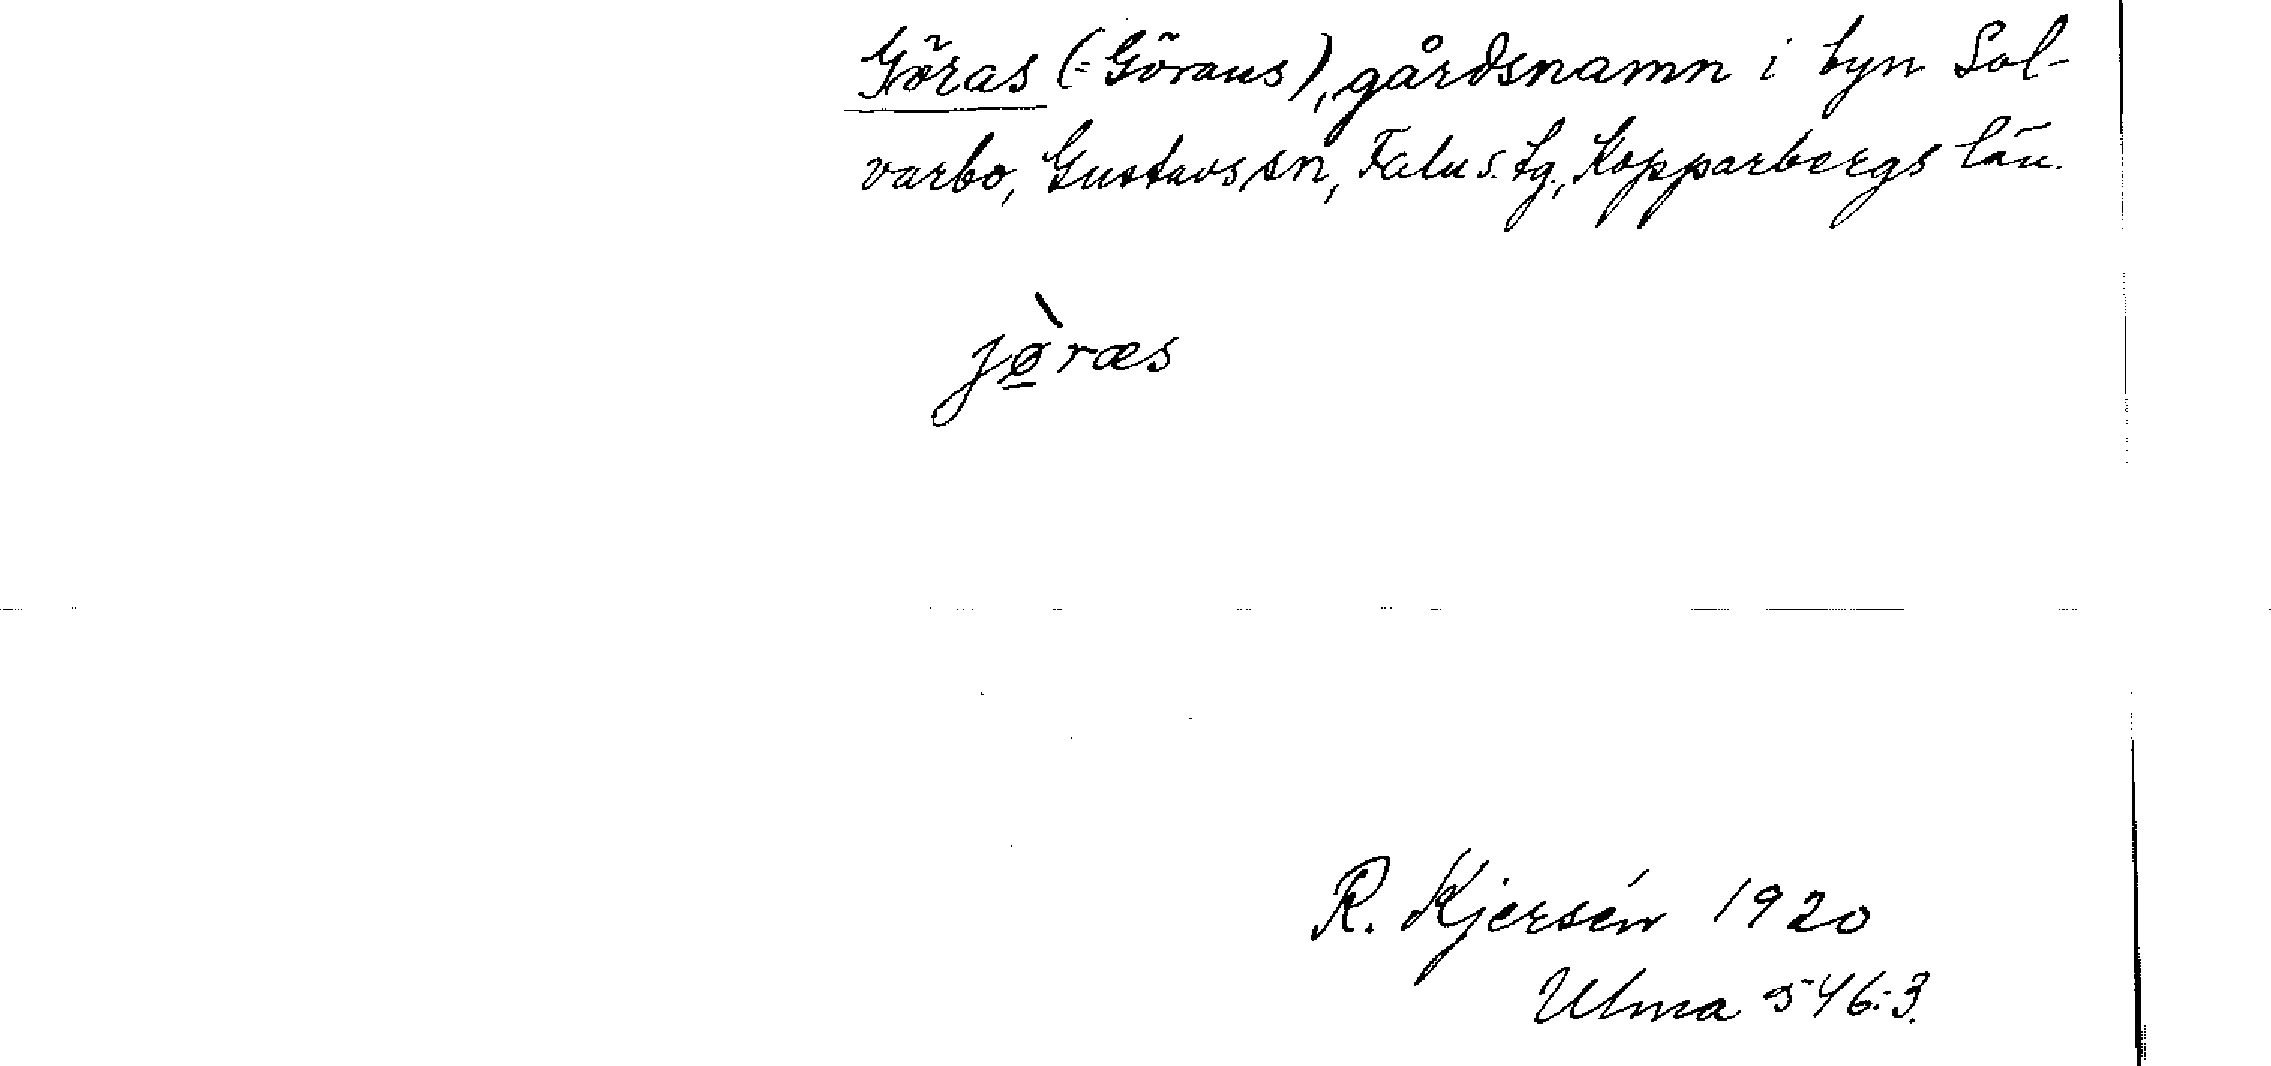 Göras (= Görans), gårdsnamn i byn Sol-
varbo, Gustavs sn, Falu s. tg., Kopparbergs län.
jø̠̀ræs
R. Kjersén 1920
Ulma 546:3.